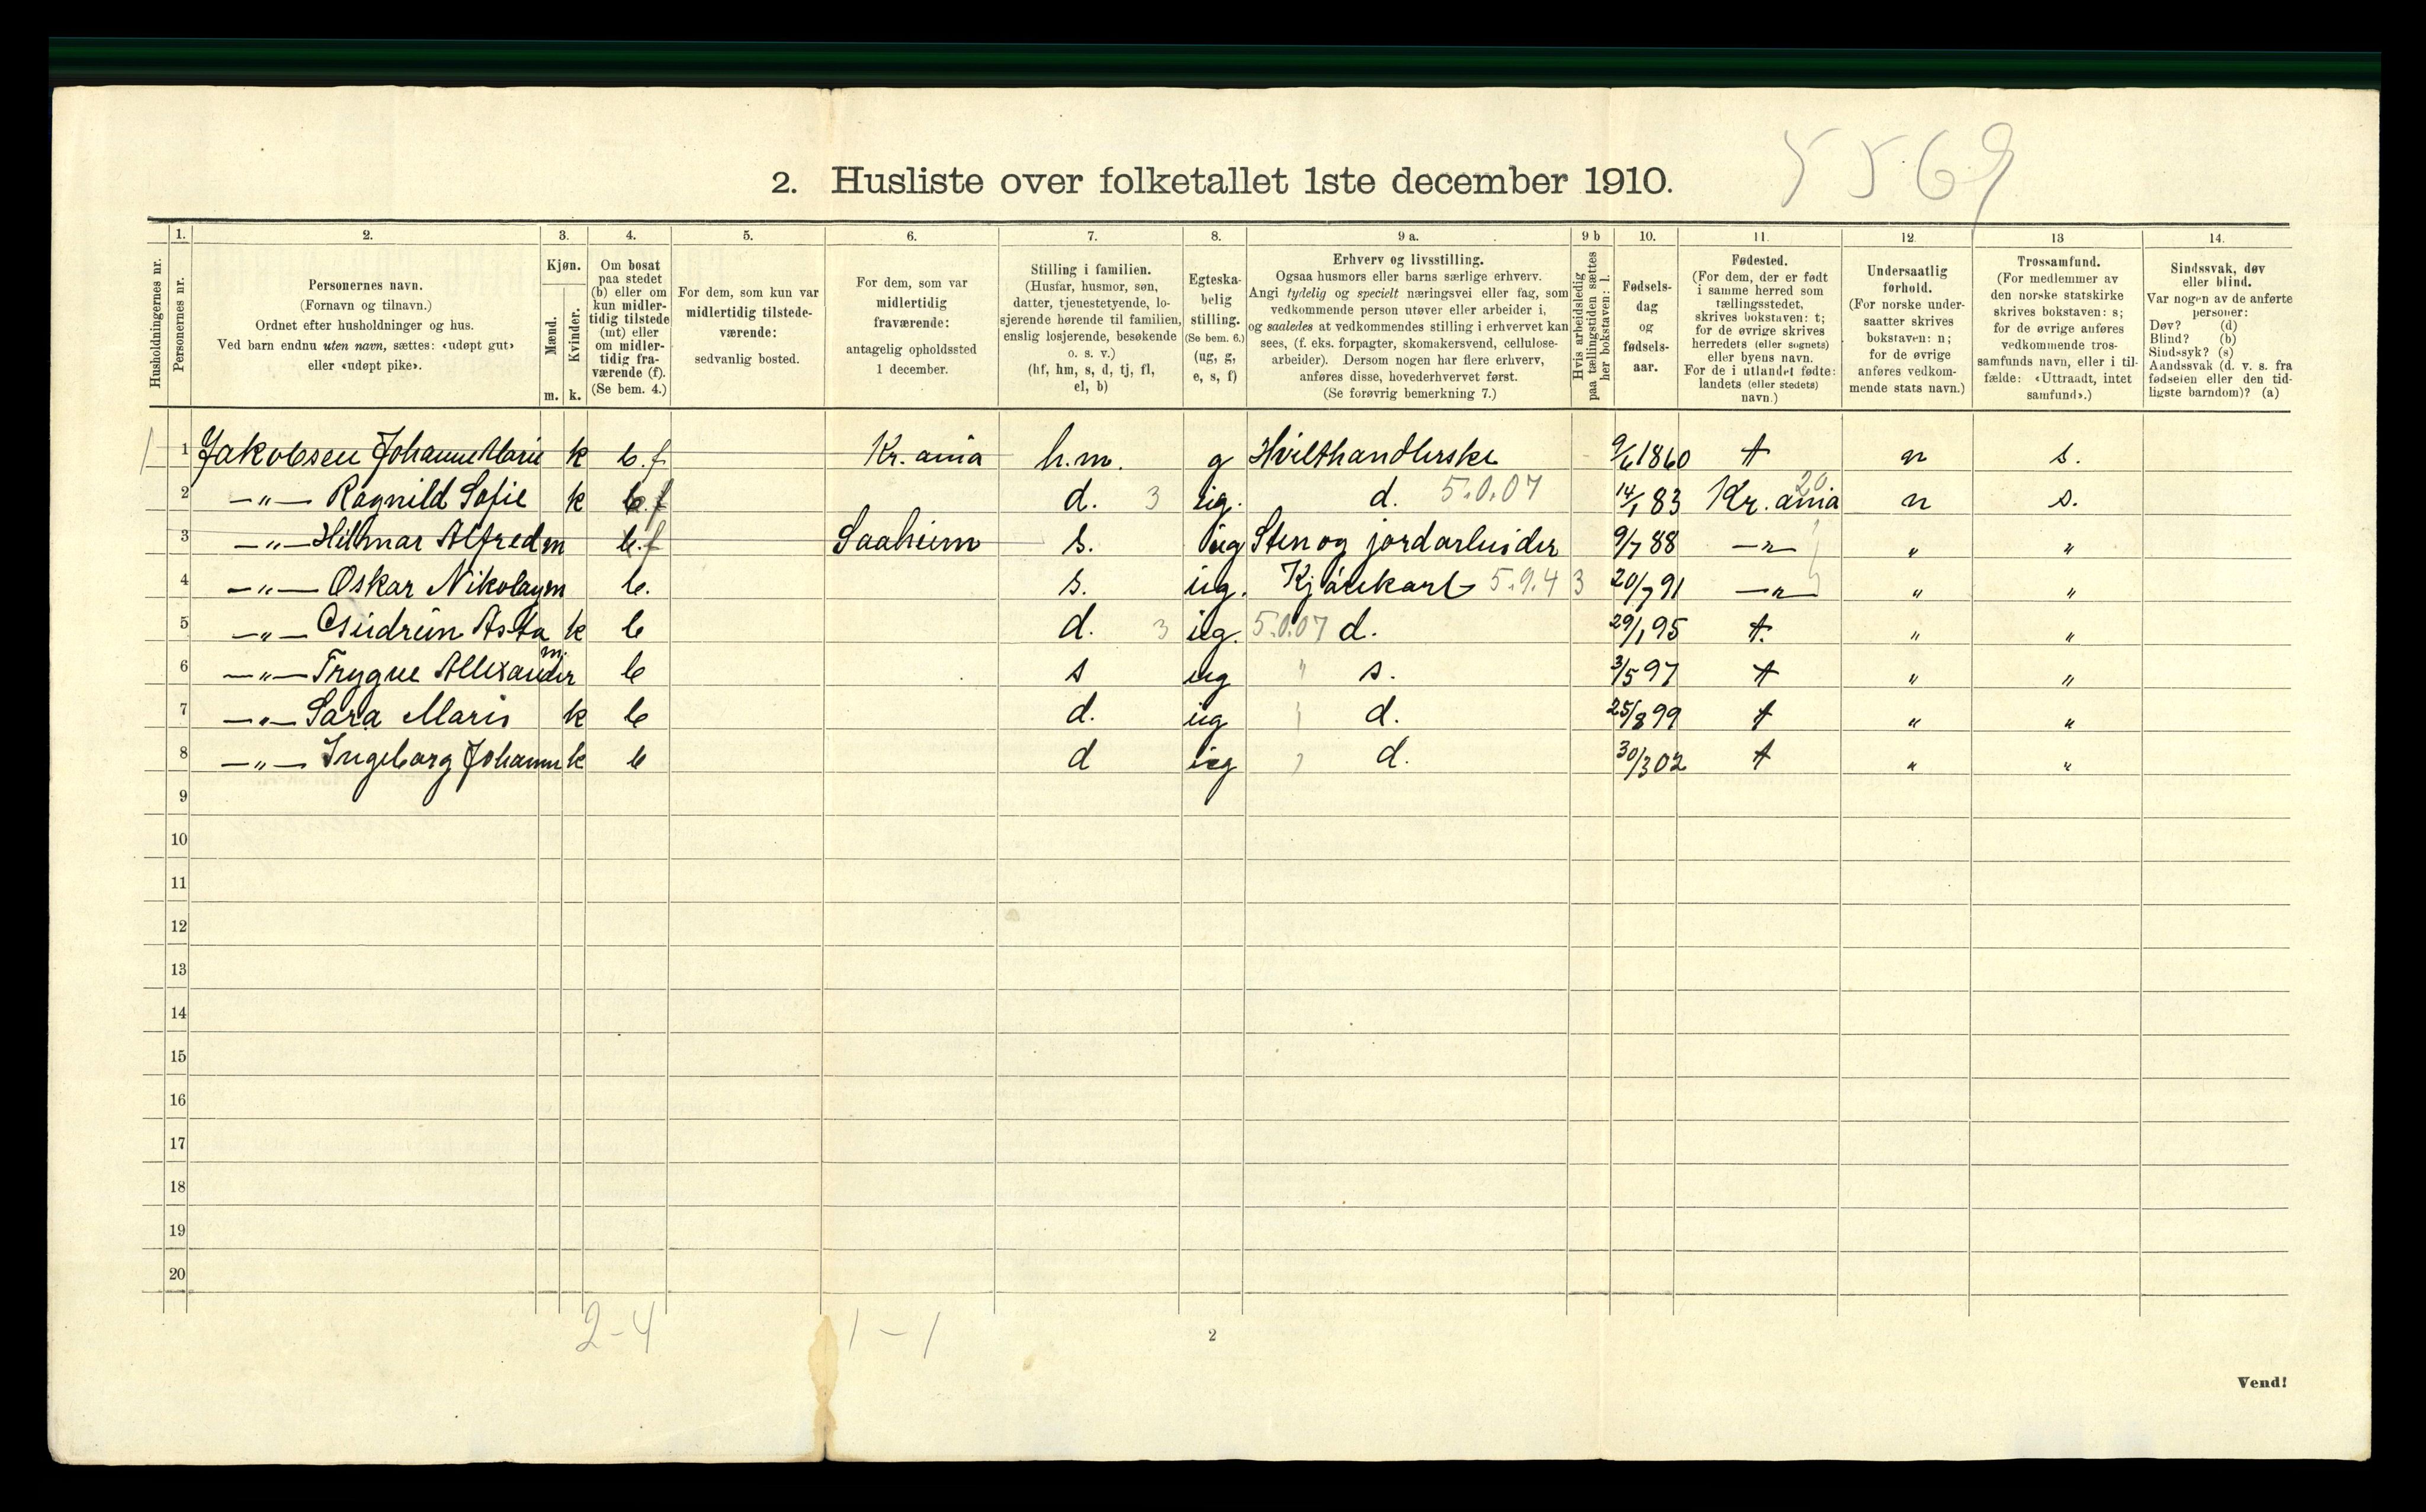 5569
2. Husliste over folketallet 1ste december 1910.
1. 2. 3. 4. 5. 6. 7. 8. 9 a. 9 b 10. 11. 12 13 14.
Husholdningernes nr.
Personernes nr.
Personernes navn.
(Fornavn og tilnavn.)
Ordnet efter husholdninger og hus.
Ved barn endnu uten navn, sættes: «udøpt gut»
eller «udøpt pike».
Kjøn.
Mænd.
Kvinder.
m. k.
Om bosat
paa stedet
(b) eller om
kun midler-
tidig tilstede
(mt) eller
om midler-
tidig fra-
værende (f).
(Se bem. 4.)
For dem, som kun var
midlertidig tilstede-
værende:
sedvanlig bosted.
For dem, som var
midlertidig
fraværende:
antagelig opholdssted
1 december.
Stilling i familien.
(Husfar, husmor, søn,
datter, tjenestetyende, lo-
sjerende hørende til familien,
enslig losjerende, besøkende
o. s. v.)
(hf, hm, s, d, tj, fl,
el, b)
Egteska-
belig
stilling.
(Se bem. 6.)
(ug, g,
e, s, f)
Erhverv og livsstilling.
Ogsaa husmors eller barns særlige erhverv.
Angi tydelig og specielt næringsvei eller fag, som
vedkommende person utøver eller arbeider i,
og saaledes at vedkommendes stilling i erhvervet kan
sees, (f. eks. forpagter, skomakersvend, cellulose-
arbeider). Dersom nogen har flere erhverv,
anføres disse, hovederhvervet først.
(Se forøvrig bemerkning 7.)
Hvis arbeidsledig
paa tællingstiden sættes
her bokstaven: l.
Fødsels-
dag
og
fødsels-
aar.
Fødested.
(For dem, der er født
i samme herred som
tællingsstedet,
skrives bokstaven: t;
for de øvrige skrives
herredets (eller sognets)
eller byens navn.
For de i utlandet fødte:
landets (eller stedets)
navn.)
Undersaatlig
forhold.
(For norske under-
saatter skrives
bokstaven: n;
for de øvrige
anføres vedkom-
mende stats navn.)
Trossamfund.
(For medlemmer av
den norske statskirke
skrives bokstaven: s;
for de øvrige anføres
vedkommende tros-
samfunds navn, eller i til-
fælde: «Uttraadt, intet
samfund».)
Sindssvak, døv
eller blind.
Var nogen av de anførte
personer:
Døv? (d)
Blind? (b)
Sindssyk? (s)
Aandssvak (d. v. s. fra
fødselen eller den tid-
ligste barndom)? (a)
1 1 Jakobsen Johanne Marie k b.f Kr.ania h.m. g 9/6 1860 t n s.
2 —"— Ragnild Sofie k b.f d. 3 ug. d. 5.0.07 14/1 83 Kr.ania 20 n s.
3 —"— Hilmar Alfred m b.f Saaheim s. ug Sten og jordarbeider 9/7 88 —"— " "
4 —"— Oskar Nikolay m b. s. ug. Kjørekarl 5.9.4 3 20/7 91 —"— " "
5 —"— Gudrun Asta k b d. 3 ug. 5.0.07 d. 29/1 95 t. " "
6 —"— Trygve Allexander m. b s ug " s. 3/5 97 t " "
7 —"— Sara Marie k b d. ug d. 25/8 99 t " "
8 —"— Ingeborg Johanne k b d ug d. 30/3 02 t " "
9
10
11
12
13
14
15
16
17
18
19
20
2-4 1-1
2
Vend!